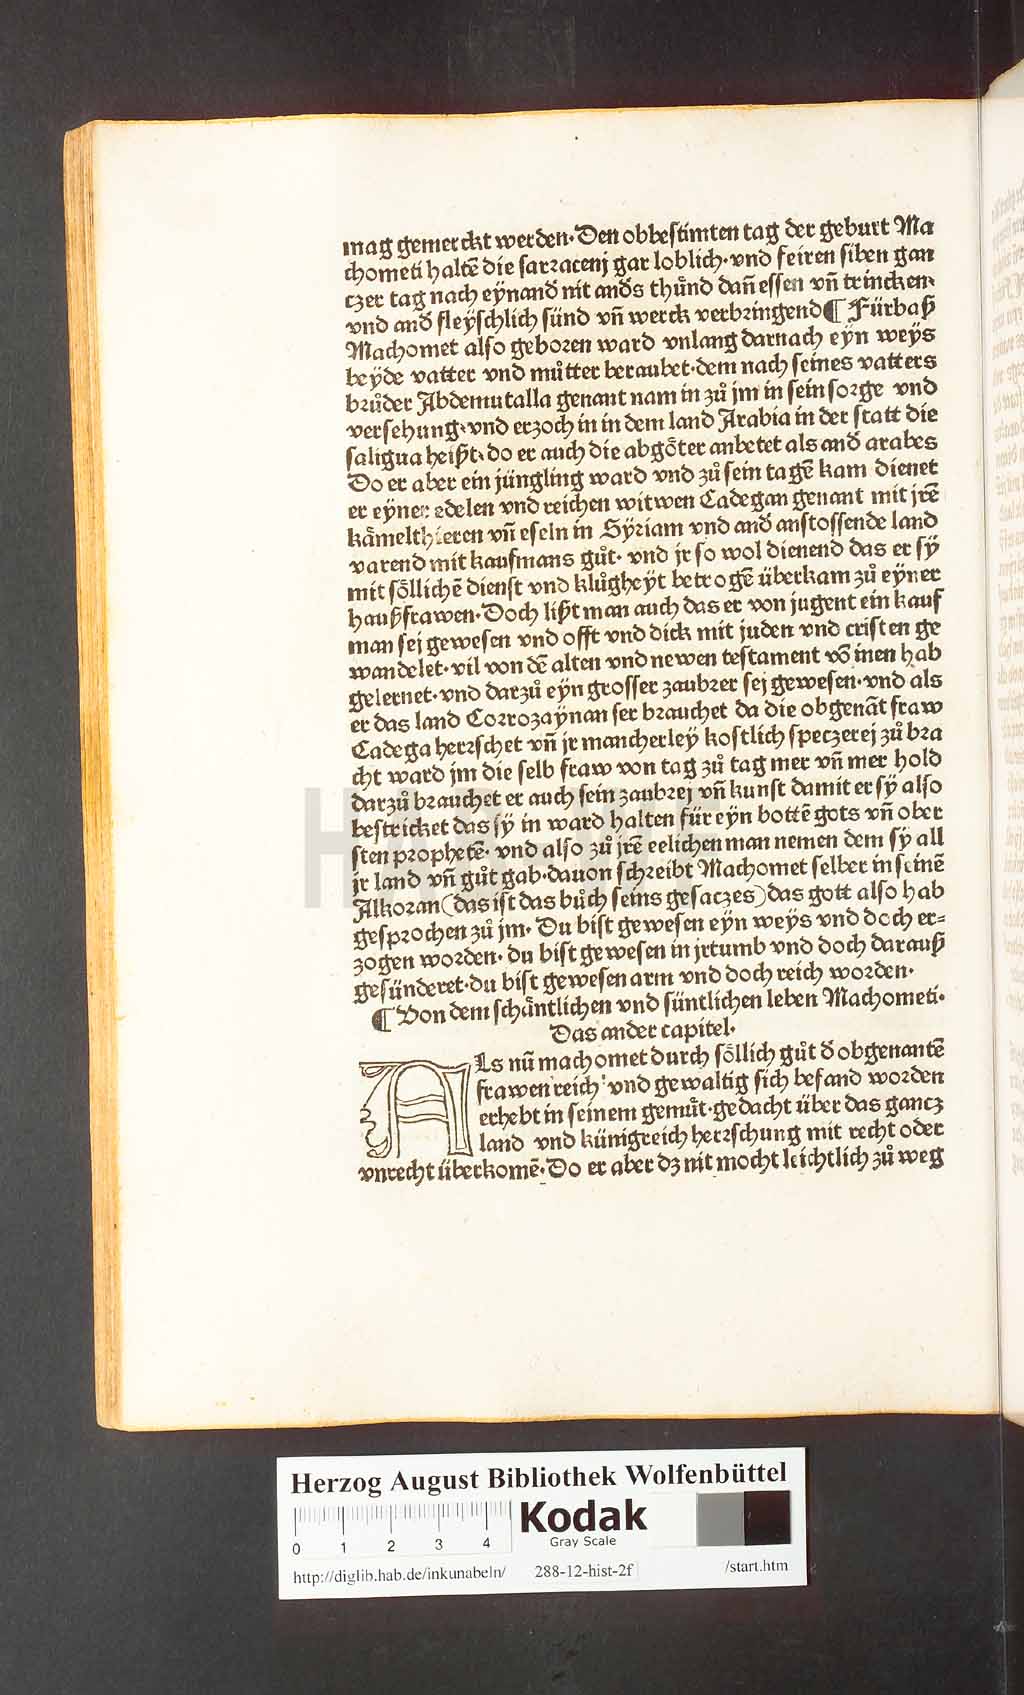 mag gemerckt werden· Den obbestimten tag der geburt Ma
chometi haltē die sarracenj gar loblich· vnd feiren siben gan
czer tag nach eÿnand nit anđs thůnd dañ essen vñ trincken·
vnd anđ fleÿschlich sünd vñ werck verbringend ¶ Fürbaß
Machomet also geboren ward vnlang darnach eÿn weÿs
beÿde vatter vnd můtter beraubet· dem nach seines vatters
brůder Abdemutalla genant nam in zů jm in sein sorge vnd
versehung· vnd erzoch in in dem land Arabia in der statt die
saligua heißt· do er auch die abgöter anbetet als anđ arabes
Do er aber ein jüngling ward vnd zů sein tagē kam dienet
er eÿner edelen vnd reichen witwen Cadegan genant mit jrē
kämelthieren vñ eseln in Sÿriam vnd anđ anstossende land
varend mit kaufmans gůt· vnd jr so wol dienend das er sÿ
mit söllichē dienst vnd klůgheÿt betrogē überkam zů eÿner
haußfrawen· Doch lißt man auch das er von jugent ein kauf
man sej gewesen vnd offt vnd dick mit juden vnd cristen ge
wandelet· vil von dē alten vnd newen testament võ inen hab
gelernet· vnd darzů eÿn grosser zaubrer sej gewesen· vnd als
er das land Corrozaÿnan ser brauchet da die obgenāt fraw
Cadega herrschet vñ jr mancherleÿ kostlich speczerej zů bra
cht ward jm die selb fraw von tag zů tag mer vñ mer hold
darzů brauchet er auch sein zaubrej vñ kunst damit er sÿ also
bestricket das sÿ in ward halten für eÿn bottē gots vñ ober
sten prophetē· vnd also zů jrē eelichen man nemen dem sÿ all
jr land vñ gůt gab· dauon schreibt Machomet selber in seinē
Alkoran (das ist das bůch seins gesaczes) das gott also hab
gesprochen zů jm· Du bist gewesen eÿn weÿs vnd doch er=
zogen worden· du bist gewesen in jrtumb vnd doch darauß
gesünderet· du bist gewesen arm vnd doch reich worden·
¶ Von dem schäntlichen vnd süntlichen leben Machometi·
Das ander capitel·
Als nũ machomet durch söllich gůt đ obgenantē
frawen reich vnd gewaltig sich befand worden
erhebt in seinem gemůt· gedacht über das gancz
land vnd künigreich herrschung mit recht oder
vnrecht überkomē· Do er aber dz nit mocht leichtlich zů weg
HAB WF
Herzog August Bibliothek Wolfenbüttel
0 1 2 3 4
Kodak
Gray Scale
http://diglib.hab.de/inkunabeln/ 288-12-hist-2f /start.htm